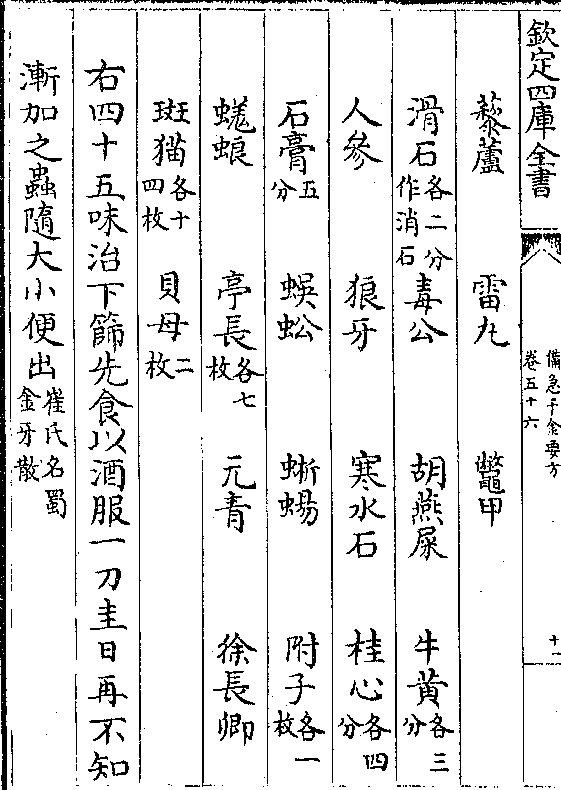 欽定四庫全書
備急千金要方
卷五十六
十一
藜蘆　雷丸　鼈甲
滑石各二分作消石　毒公　胡燕屎　牛黃各三分
人參　狼牙　寒水石　桂心各四分
石膏五分　蜈蚣　蜥蜴　附子各一枚
蜣蜋　亭長各七枚　元青　徐長卿
斑猫各十四枚　貝母二枚
右四十五味治下篩先食以酒服一刀圭日再不知
漸加之蟲隨大小便出崔氏名蜀金牙散